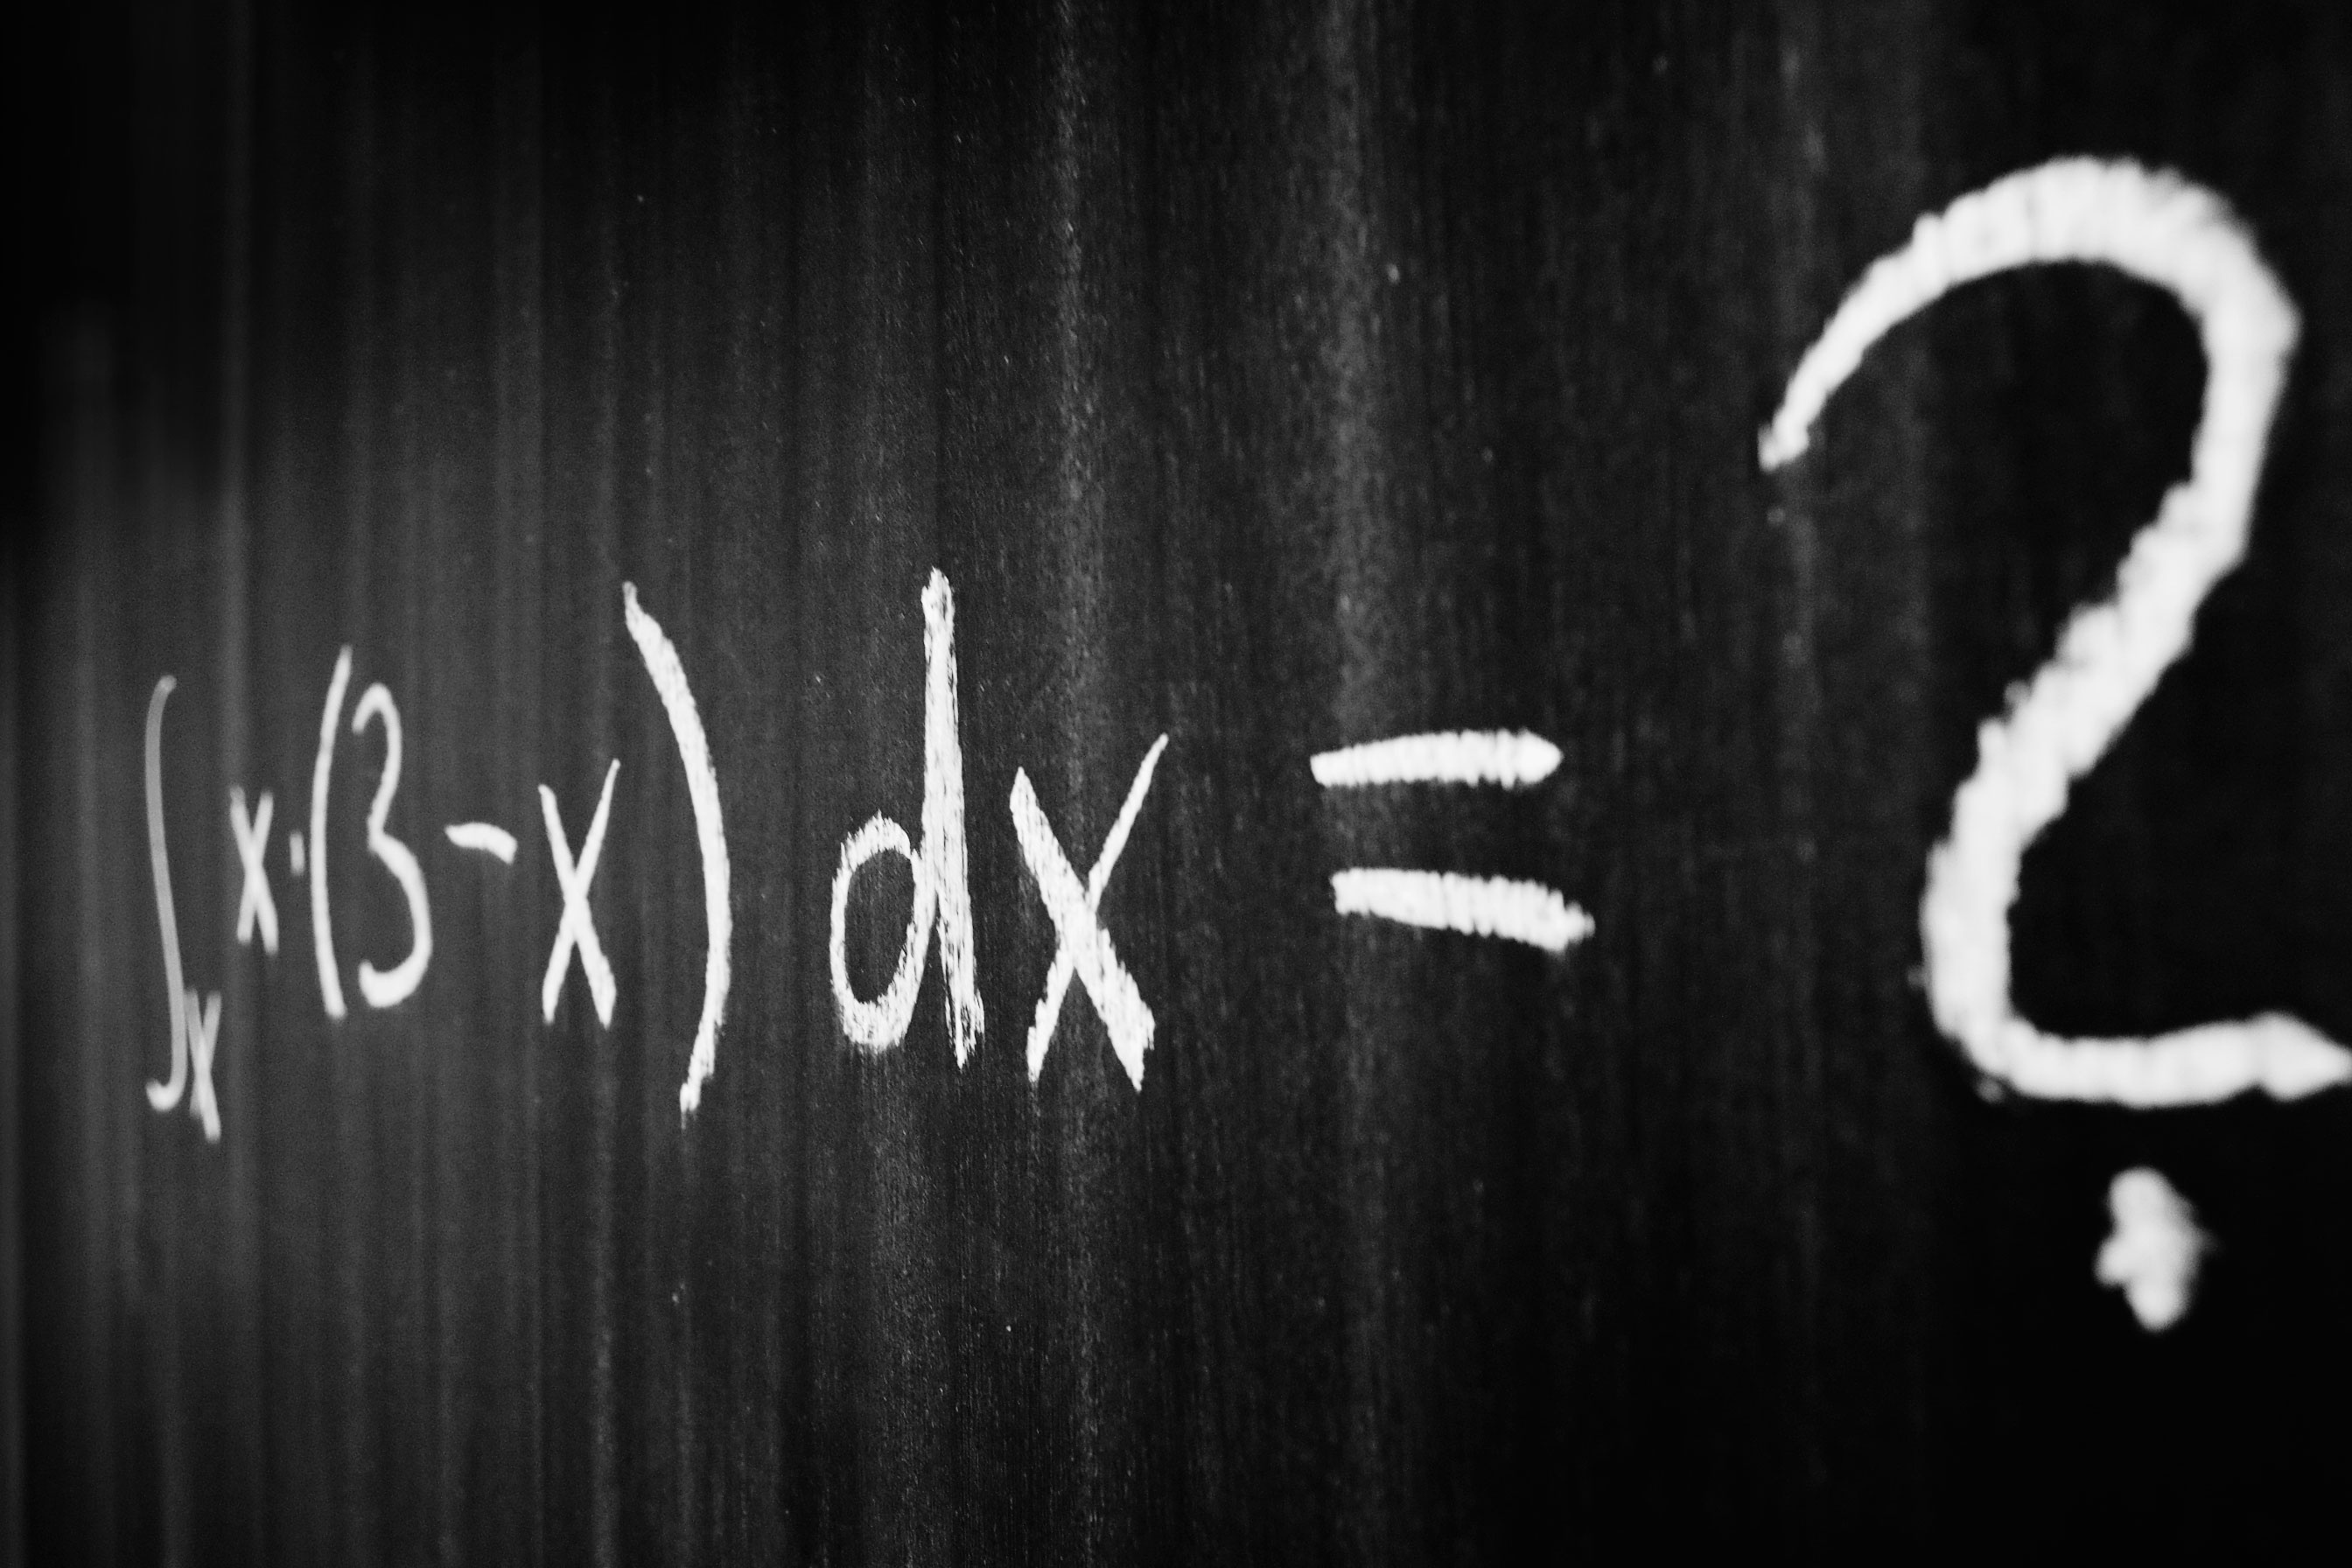 ∫ₓ x·(3-x) dx = ?